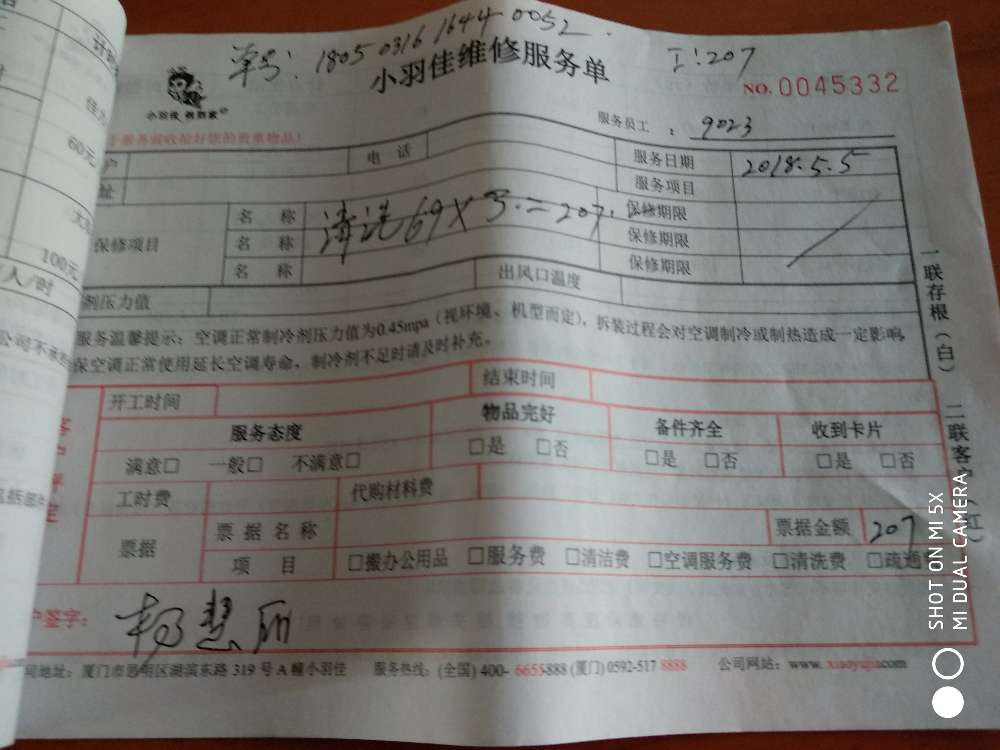 单号: 1805 0316 1644 0052.
工:207
小羽佳维修服务单
NO. 0045332
小羽佳
服务员工 : 9023
电 话
服务日期 2018.5.5
址
服务项目
保修项目
名 称 清洗69×3.=207. 保修期限
名 称 保修期限
名 称 保修期限
剂压力值
出风口温度
服务温馨提示：空调正常制冷剂压力值为0.45mpa（视环境、机型而定），拆装过程会对空调制冷或制热造成一定影响，
保空调正常使用延长空调寿命，制冷剂不足时请及时补充。
开工时间
结束时间
服务态度 物品完好 备件齐全 收到卡片
满意□ 一般□ 不满意□ □是 □否 □是 □否 □是 □否
工时费
代购材料费
票据
票 据 名 称
票据金额 207
项 目 □搬办公用品 □服务费 □清洁费 □空调服务费 □清洗费 □疏通
户签字： 杨慧丽
司地址：厦门市思明区湖滨东路 319 号 A 幢小羽佳 服务热线：(全国) 400- 6655888 (厦门) 0592-517 8888 公司网站：www. xiaoyujia.com
一联存根（白） 二联客户（红）
计
佳
60元
100元
人/时
公司不
SHOT ON MI 5X
MI DUAL CAMERA